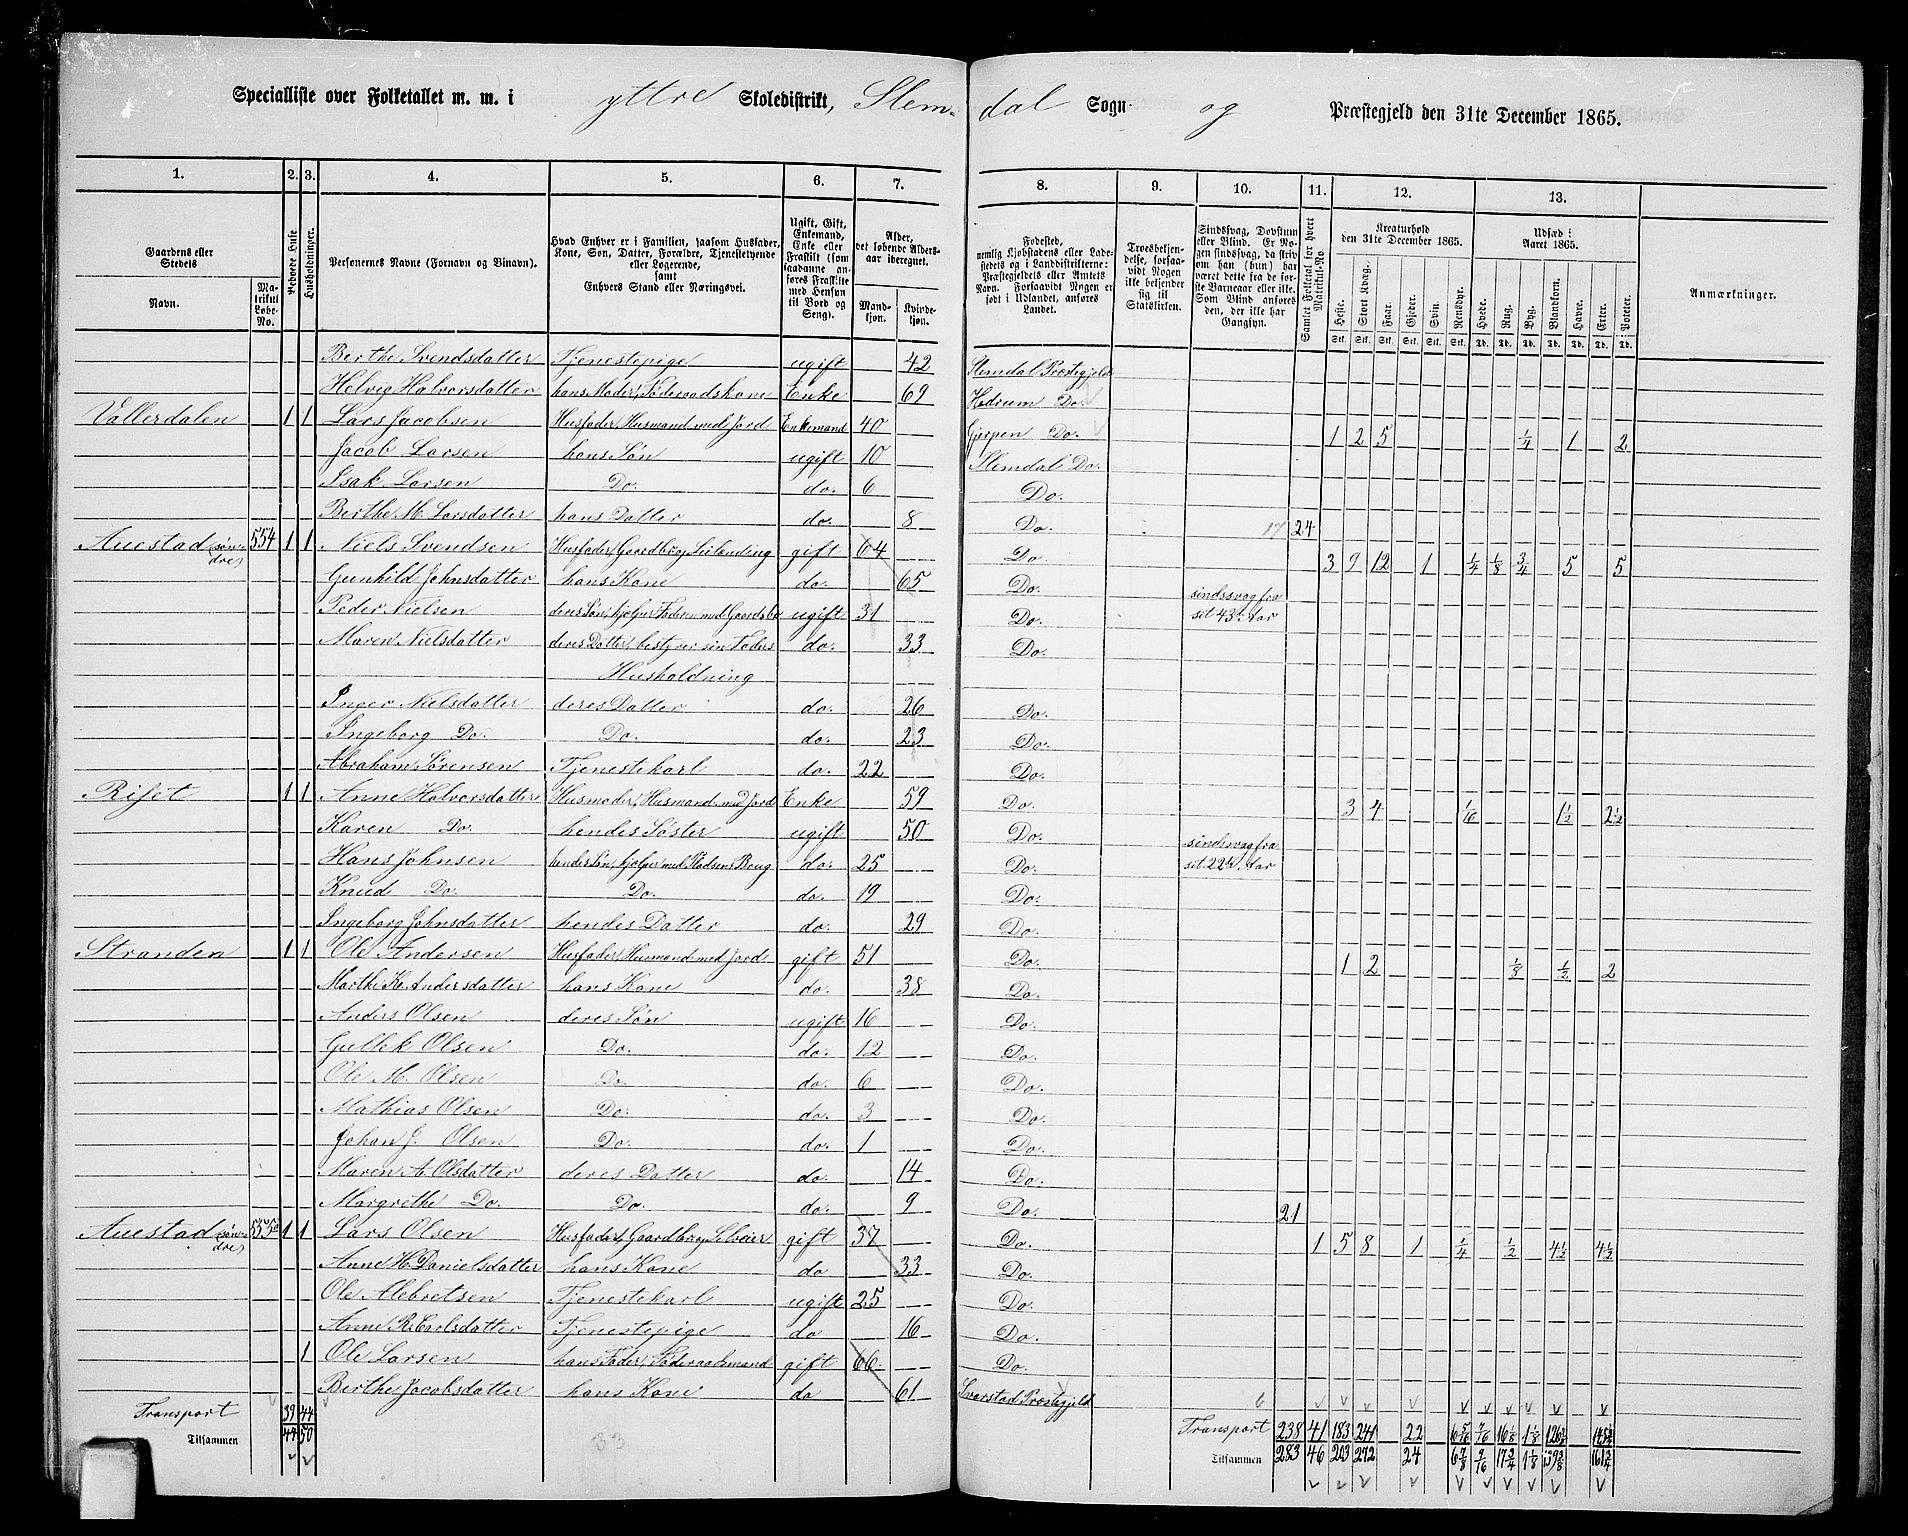 Specialliste over Folketallet m. m. i yttre Skoledistrikt, Slemdal Sogn og Præstegjeld den 31te December 1865.
1. 2. 3. 4. 5. 6. 7. 8. 9. 10. 11. 12. 13.
Gaardens eller Stedets
Navn. Matrikul Løbe-No.
Beboede Huse.
Husholdninger.
Personernes Navne (Fornavn og Binavn).
Hvad Enhver er i Familien, saasom Husfader, Kone, Søn, Datter, Forældre, Tjenestetyende eller Logerende, samt Enhvers Stand eller Næringsvei.
Ugift, Gift, Enkemand, Enke eller Fraskilt (som saadanne anføres Fraskilte med Hensyn til Bord og Seng).
Alder, det løbende Aldersaar iberegnet.
Mandkjøn. Kvindekjøn.
Fødested, nemlig Kjøbstadens eller Ladestedets og i Landdistrikterne: Præstegjeldets eller Amtets Navn. Forsaavidt Nogen er født i Udlandet, anføres Landet.
Troesbekjendelse, forsaavidt Nogen ikke bekjender sig til Statskirken.
Sindssvag, Døvstum eller Blind. Er Nogen sindssvag, da skrives om han (hun) har været dette fra de første Barneaar eller ikke. Som Blind anføres den, der ikke har Gangsyn.
Samlet Folketal for hvert Matrikul-No.
Kreaturhold den 31te December 1865.
Heste. Stort Kvæg. Faar. Gjeder. Svin. Rensdyr.
Udsæd i Aaret 1865.
Hvede. Rug. Byg. Blandkorn. Havre. Erter. Poteter.
Anmærkninger.
Berthe Svendsdatter Tjenestepige ugift 42 Slemdal Præstegjeld
Helvig Halvorsdatter hans Moder, Føderaadskone Enke 69 Hedrum Do.
Vallerdalen 1 1 Lars Jacobsen Husfader, Husmand med Jord Enkemand 40 Gjerpen Do. 1 2 5 1/4 1 2
Jacob Larsen hans Søn ugift 10 Slemdal Do.
Isak Larsen Do. do. 6 Do.
Berthe M. Larsdatter hans Datter do. 8 Do. 17 24
Auestad (søndre) 554 1 1 Niels Svendsen Husfader, Gaardbr. gift 64 Do. 3 9 12 1 1/4 1/8 3/4 5 5
Gunhild Johnsdatter hans Kone do. 65 Do. sindssvag fra
Peder Nielsen deres Søn, hjelper Faderen med Gaardsbr. ugift 31 Do. sit 43de Aar
Maren Nielsdatter deres Datter, bestyrer sin Faders do. 33 Do.
Husholdning
Inger Nielsdatter deres Datter do. 26 Do.
Ingeborg Do. Do. do. 23 Do.
Abraham Sørensen Tjenestekarl do. 22 Do.
Riset 1 1 Anne Halvorsdatter Husmoder, Husmand med Jord Enke 59 Do. 3 4 1/6 1 1/2 2 1/2
Karen Do. hendes Søster ugift 50 Do. sindssvag fra
Hans Johnsen hendes Søn, hjelper med Pladsens Brug do. 25 Do. sit 22de Aar
Knud Do. Do. do. 19 Do.
Ingeborg Johnsdatter hendes Datter do. 29 Do.
Stranden 1 1 Ole Andersen Husfader, Husmand med Jord gift 51 Do. 1 2 1/8 1/2 2
Marthe K. Andersdatter hans Kone do. 38 Do.
Anders Olsen deres Søn ugift 16 Do.
Gullek Olsen Do. do. 12 Do.
Ole M. Olsen Do. do. 6 Do.
Mathias Olsen Do. do. 3 Do.
Johan J. Olsen Do. do. 1 Do.
Maren A. Olsdatter deres Datter do. 14 Do.
Margrethe Do. Do. do. 9 Do. 21
Auestad (søndre) 1 1 Lars Olsen Husfader, Gaardbr. Selveier gift 37 Do. 1 5 8 1 1/4 1/2 4 1/2 4 1/2
Anne H. Danielsdatter hans Kone do 33 Do.
Ole Alebretsen Tjenestekarl ugift 25 Do.
Anne R. Carlsdatter Tjenestepige do 16 Do.
1 Ole Larsen hans Fader, Føderaadsmand gift 66 Do.
Berthe Jacobsdatter hans Kone do 61 Svarstad Præstegjeld 6
Transport 39 44 Transport 238 41 183 241 22
Tilsammen 50 33 Tilsammen 283 46 203 272 24